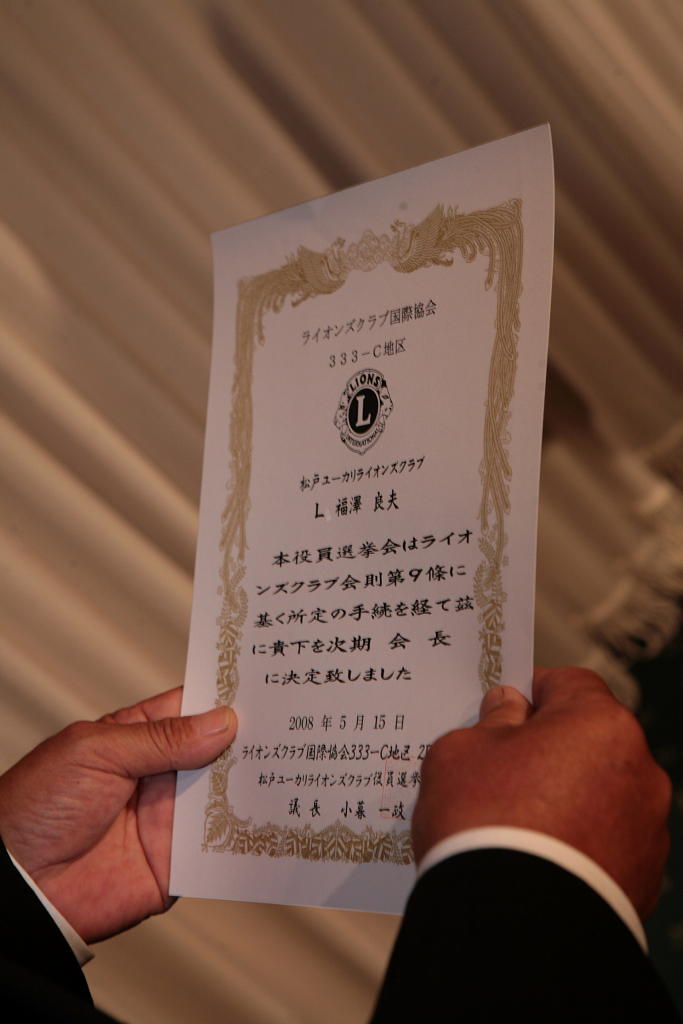 ライオンズクラブ国際協会
333-C地区
LIONS
L
INTERNATIONAL
松戸ユーカリライオンズクラブ
L 福澤 良夫
本役員選挙会はライオ
ンズクラブ会則第9條に
基く所定の手続を経て茲
に貴下を次期 会 長
に決定致しました
2008 年 5 月 15 日
ライオンズクラブ国際協会333-C地区 2
松戸ユーカリライオンズクラブ役員選挙
議 長 小 一政